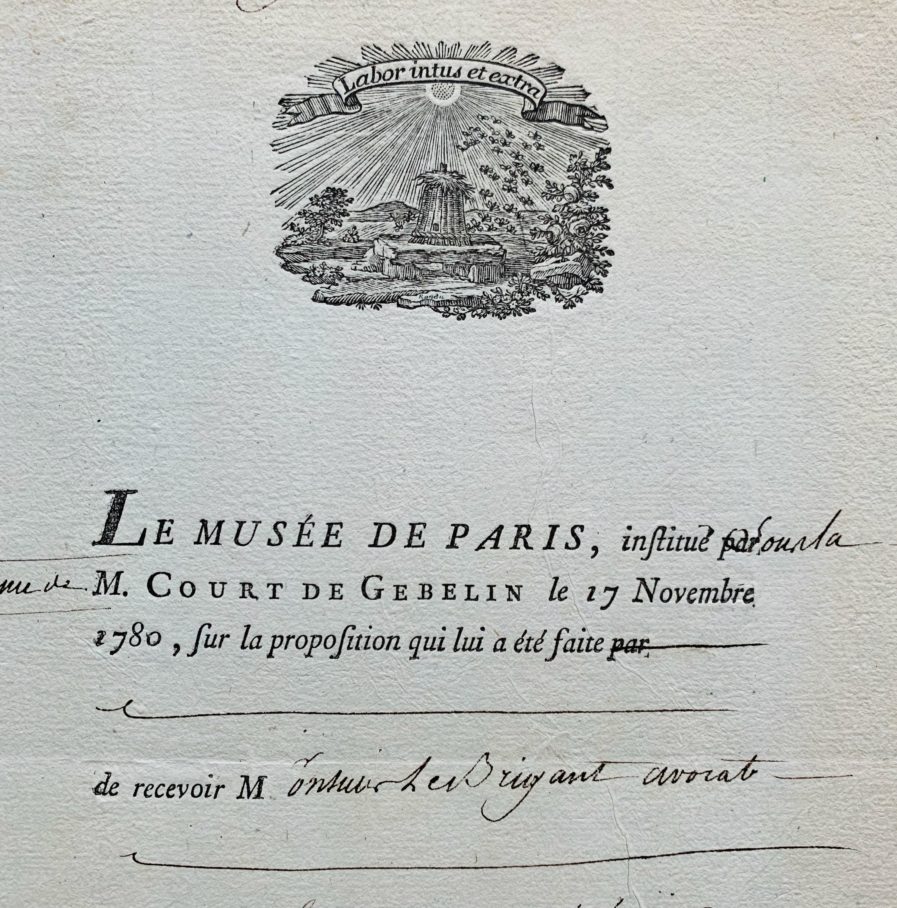 Labor intus et extra
LE MUSÉE DE PARIS, inſtitué par sous la
M. COURT DE GEBELIN le 17 Novembre
1780, ſur la propoſition qui lui a été faite par
de recevoir M Le Brigant avocat